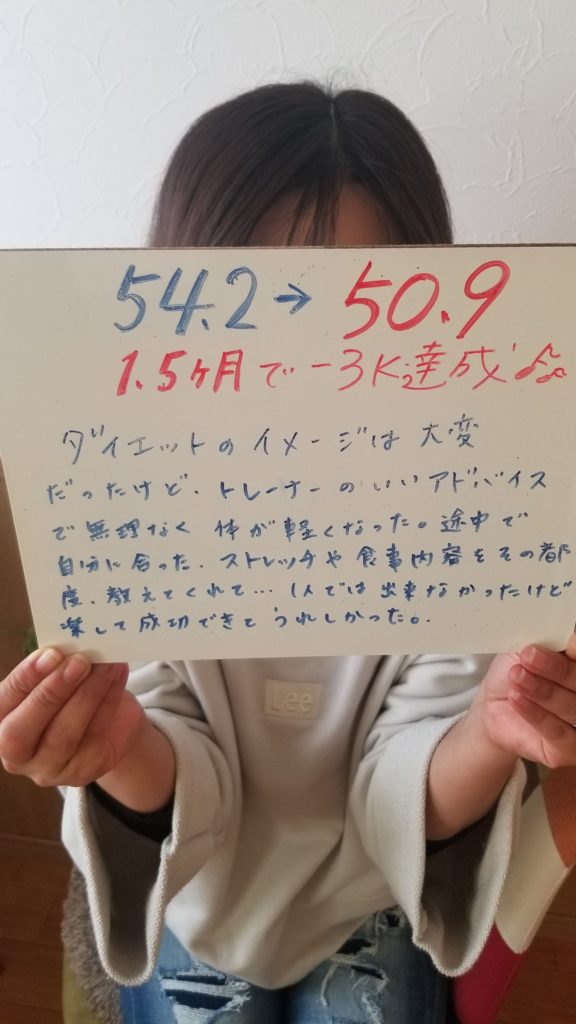 54.2→50.9
1.5ヶ月で-3K達成♫
ダイエットのイメージは大変
だったけど、トレーナーのいいアドバイス
で無理なく体が軽くなった。途中で
自分に合った、ストレッチや食事内容をその都
度、教えてくれて…1人では出来なかったけど
楽して成功できてうれしかった。
Lee